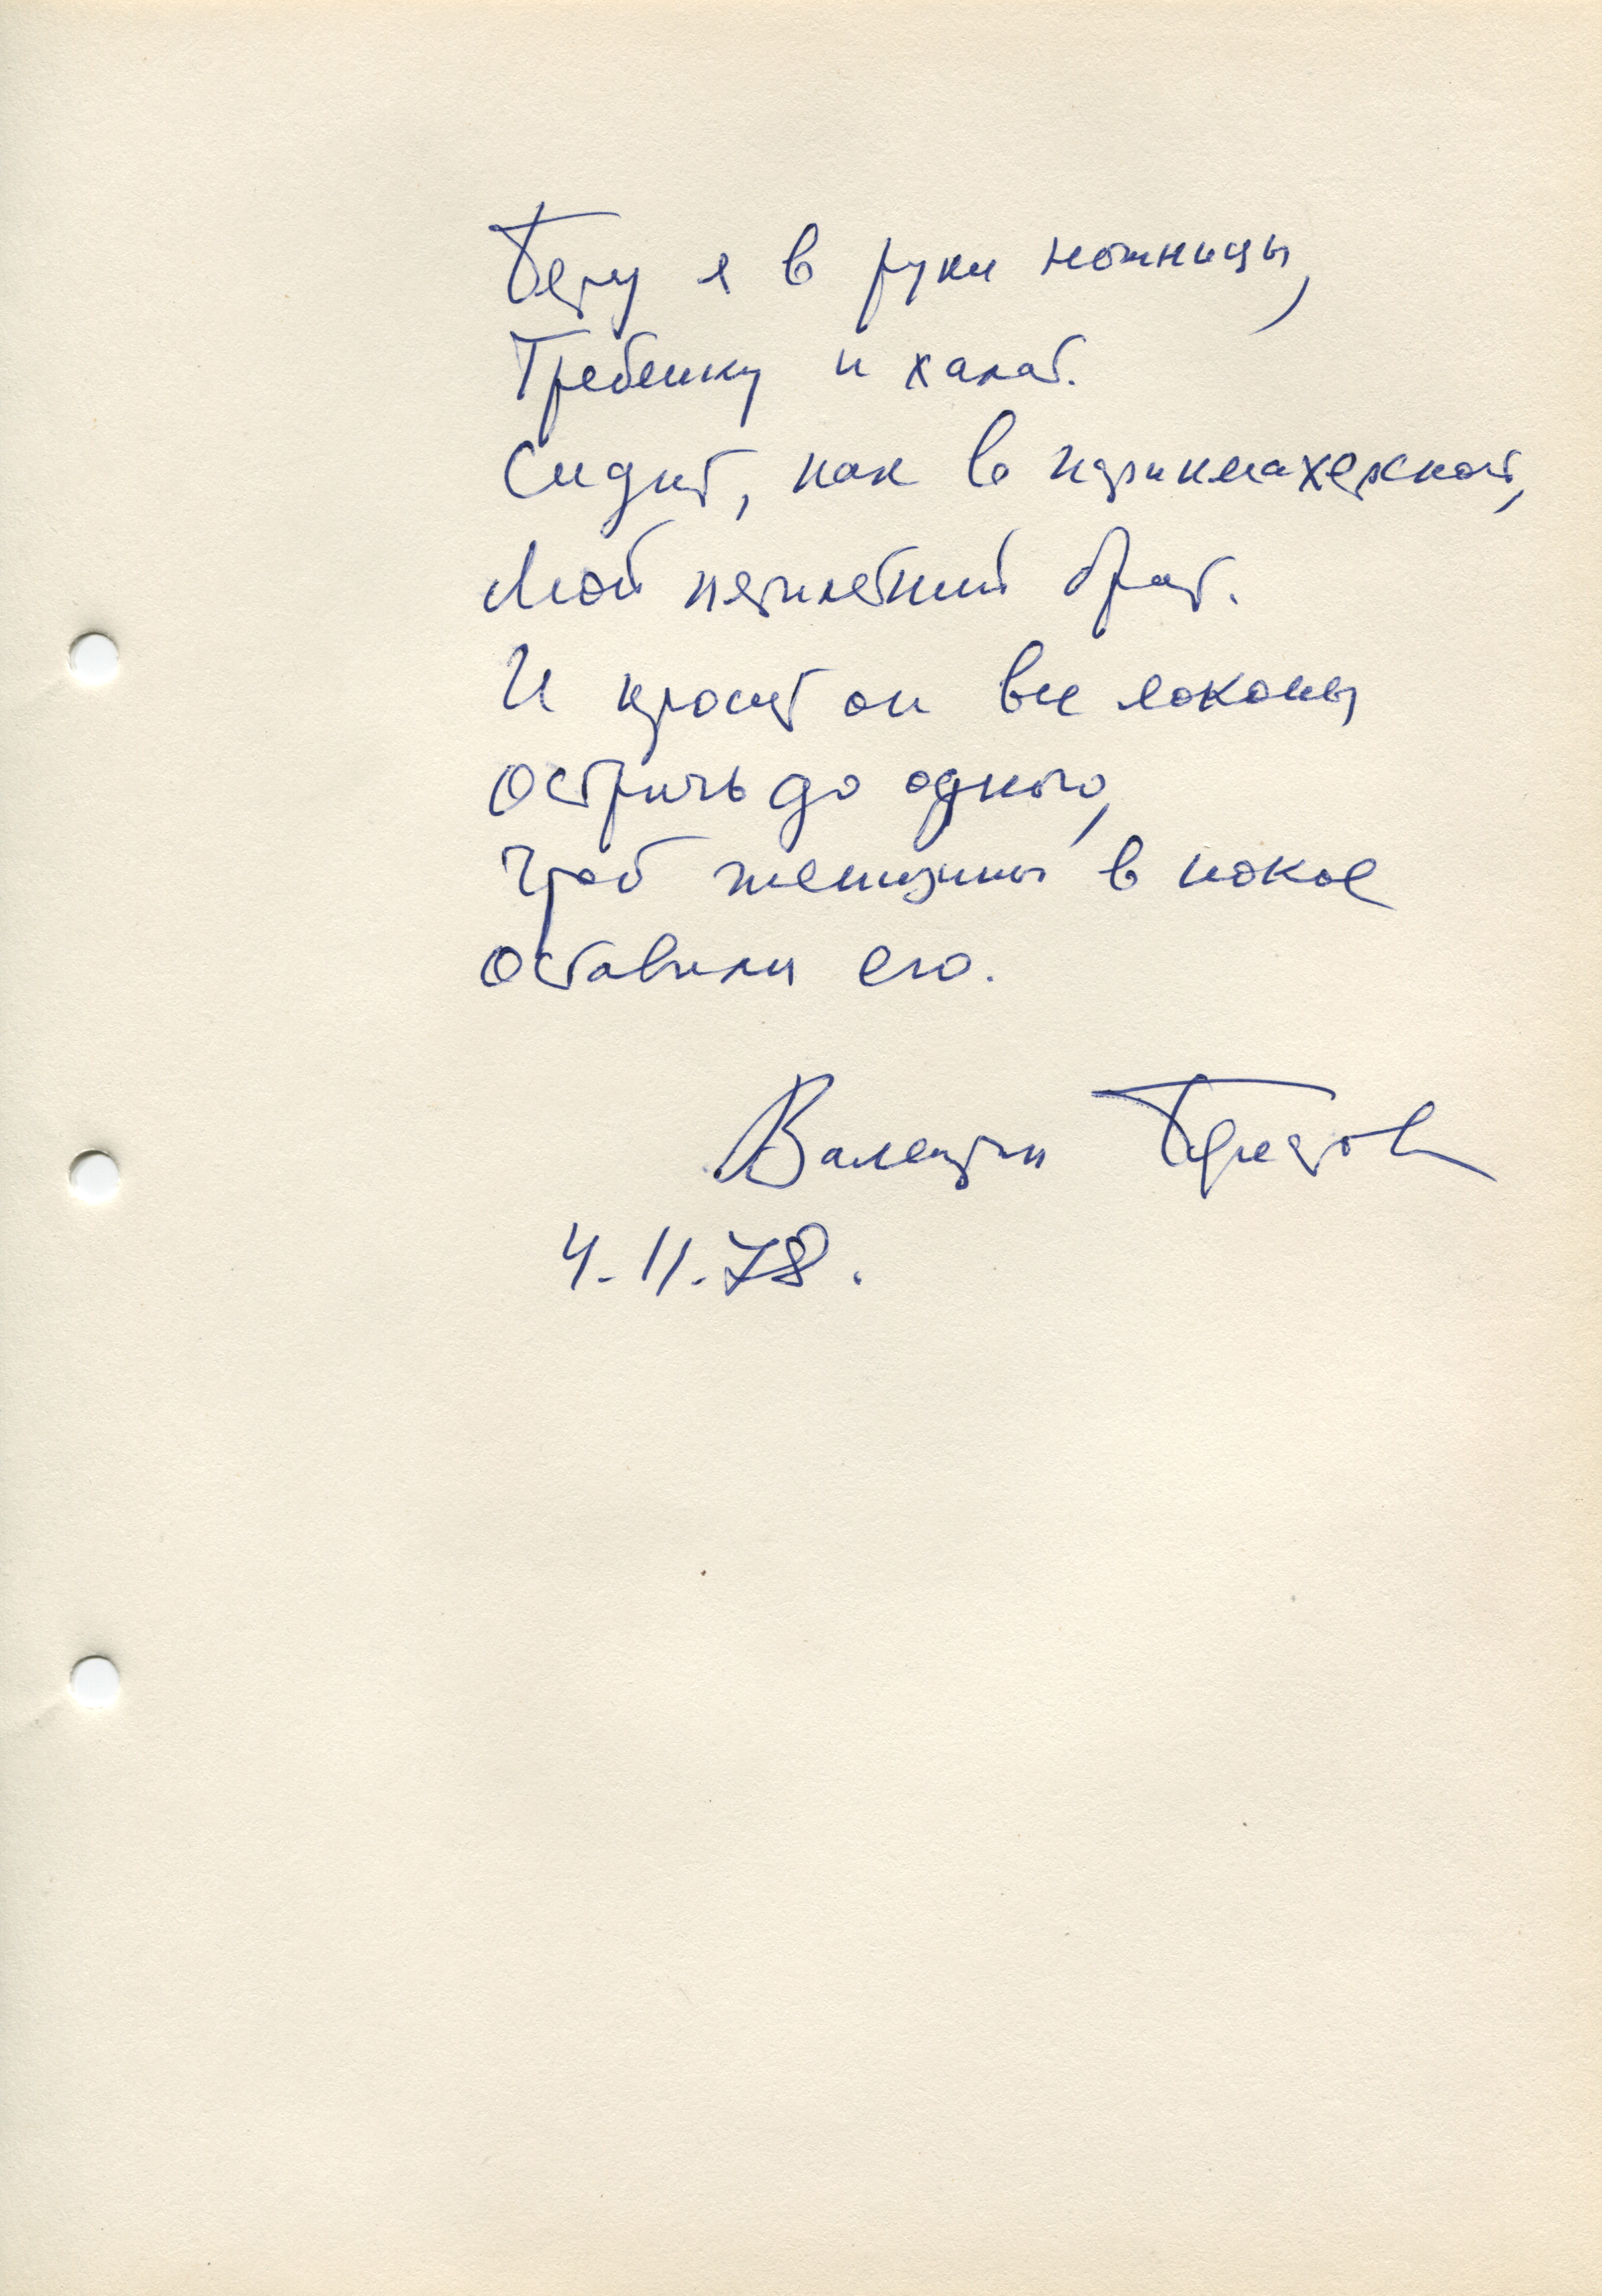 Беру я в руки ножницы,
Гребенку и халат.
Сидит, как в парикмахерской,
Мой пятилетний брат.
И просит он все локоны
Остричь до одного,
Чтоб женщины в покое
Оставили его.
Валентин Берестов
4.11.78.